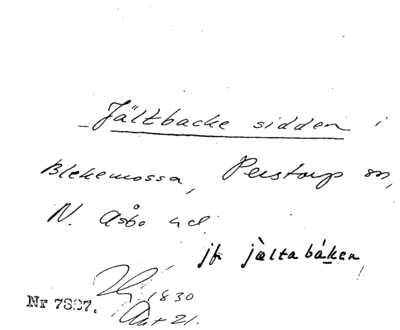 Jältbacke sidden i
Blekemossa, Perstorp sn,
N. Åsbo hd.
jfr jältabáken
Nr 7337.
1830